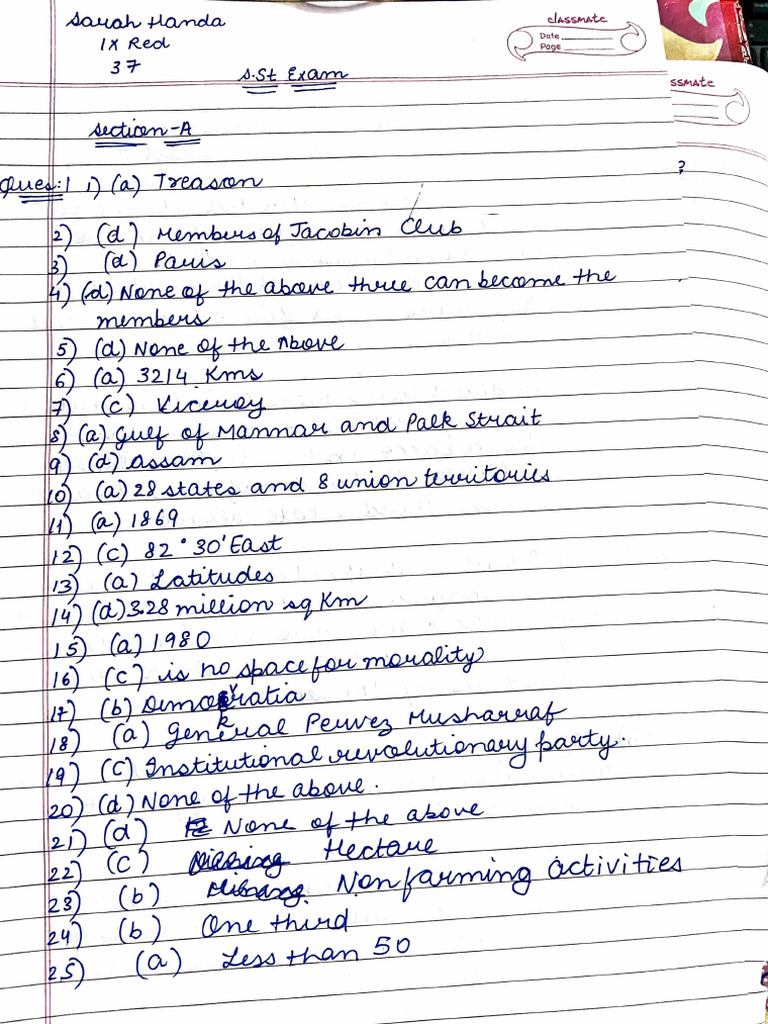 Sarah Handa
IX Red
37
classmate
Date
Page
S.St Exam
ssmate
Section-A
Ques:1 1) (a) Treason
?
2) (d) Members of Jacobin Club
3) (d) Paris
4) (d) None of the above three can become the
members
5) (d) None of the Above
6) (a) 3214 Kms
7) (c) Viceroy
8) (a) Gulf of Mannar and Palk Strait
9) (d) Assam
10) (a) 28 states and 8 union territories
11) (a) 1869
12) (c) 82° 30' East
13) (a) Latitudes
14) (d) 3.28 million sq Km
15) (a) 1980
16) (c) is no space for morality
17) (b) Demokratia
18) (a) General Pervez Musharraf
19) (c) Institutional revolutionary party.
20) (d) None of the above.
21) (d) None of the above
22) (c) Hectare
23) (b) Non farming activities
24) (b) One third
25) (a) Less than 50